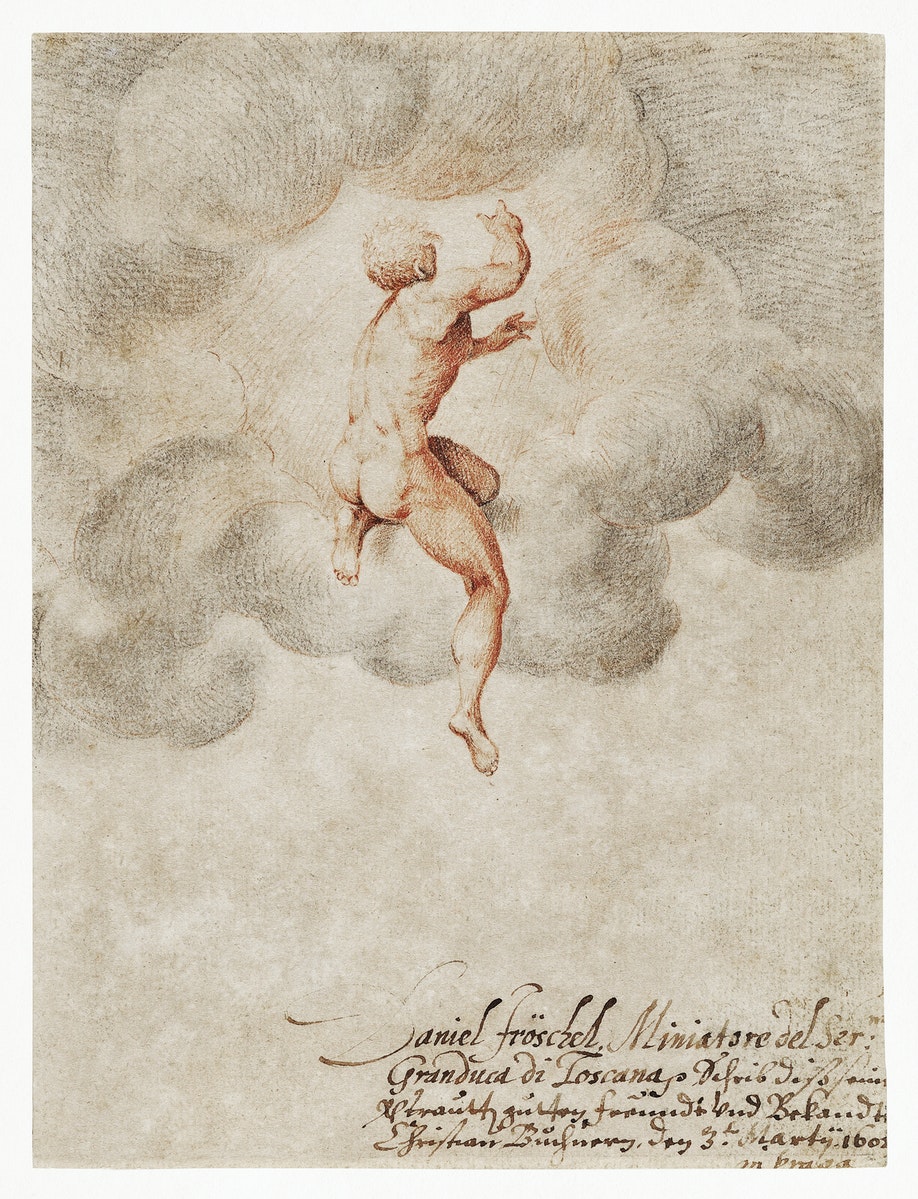 Daniel Fröschel, Miniatore del Ser:ᵐᵒ
Granduca di Toscana, Schrib diß seinē
vtrautt gutten freundt vnd Bekandt
Christian Buchnern, den 3.ᵗ Martij 160
in